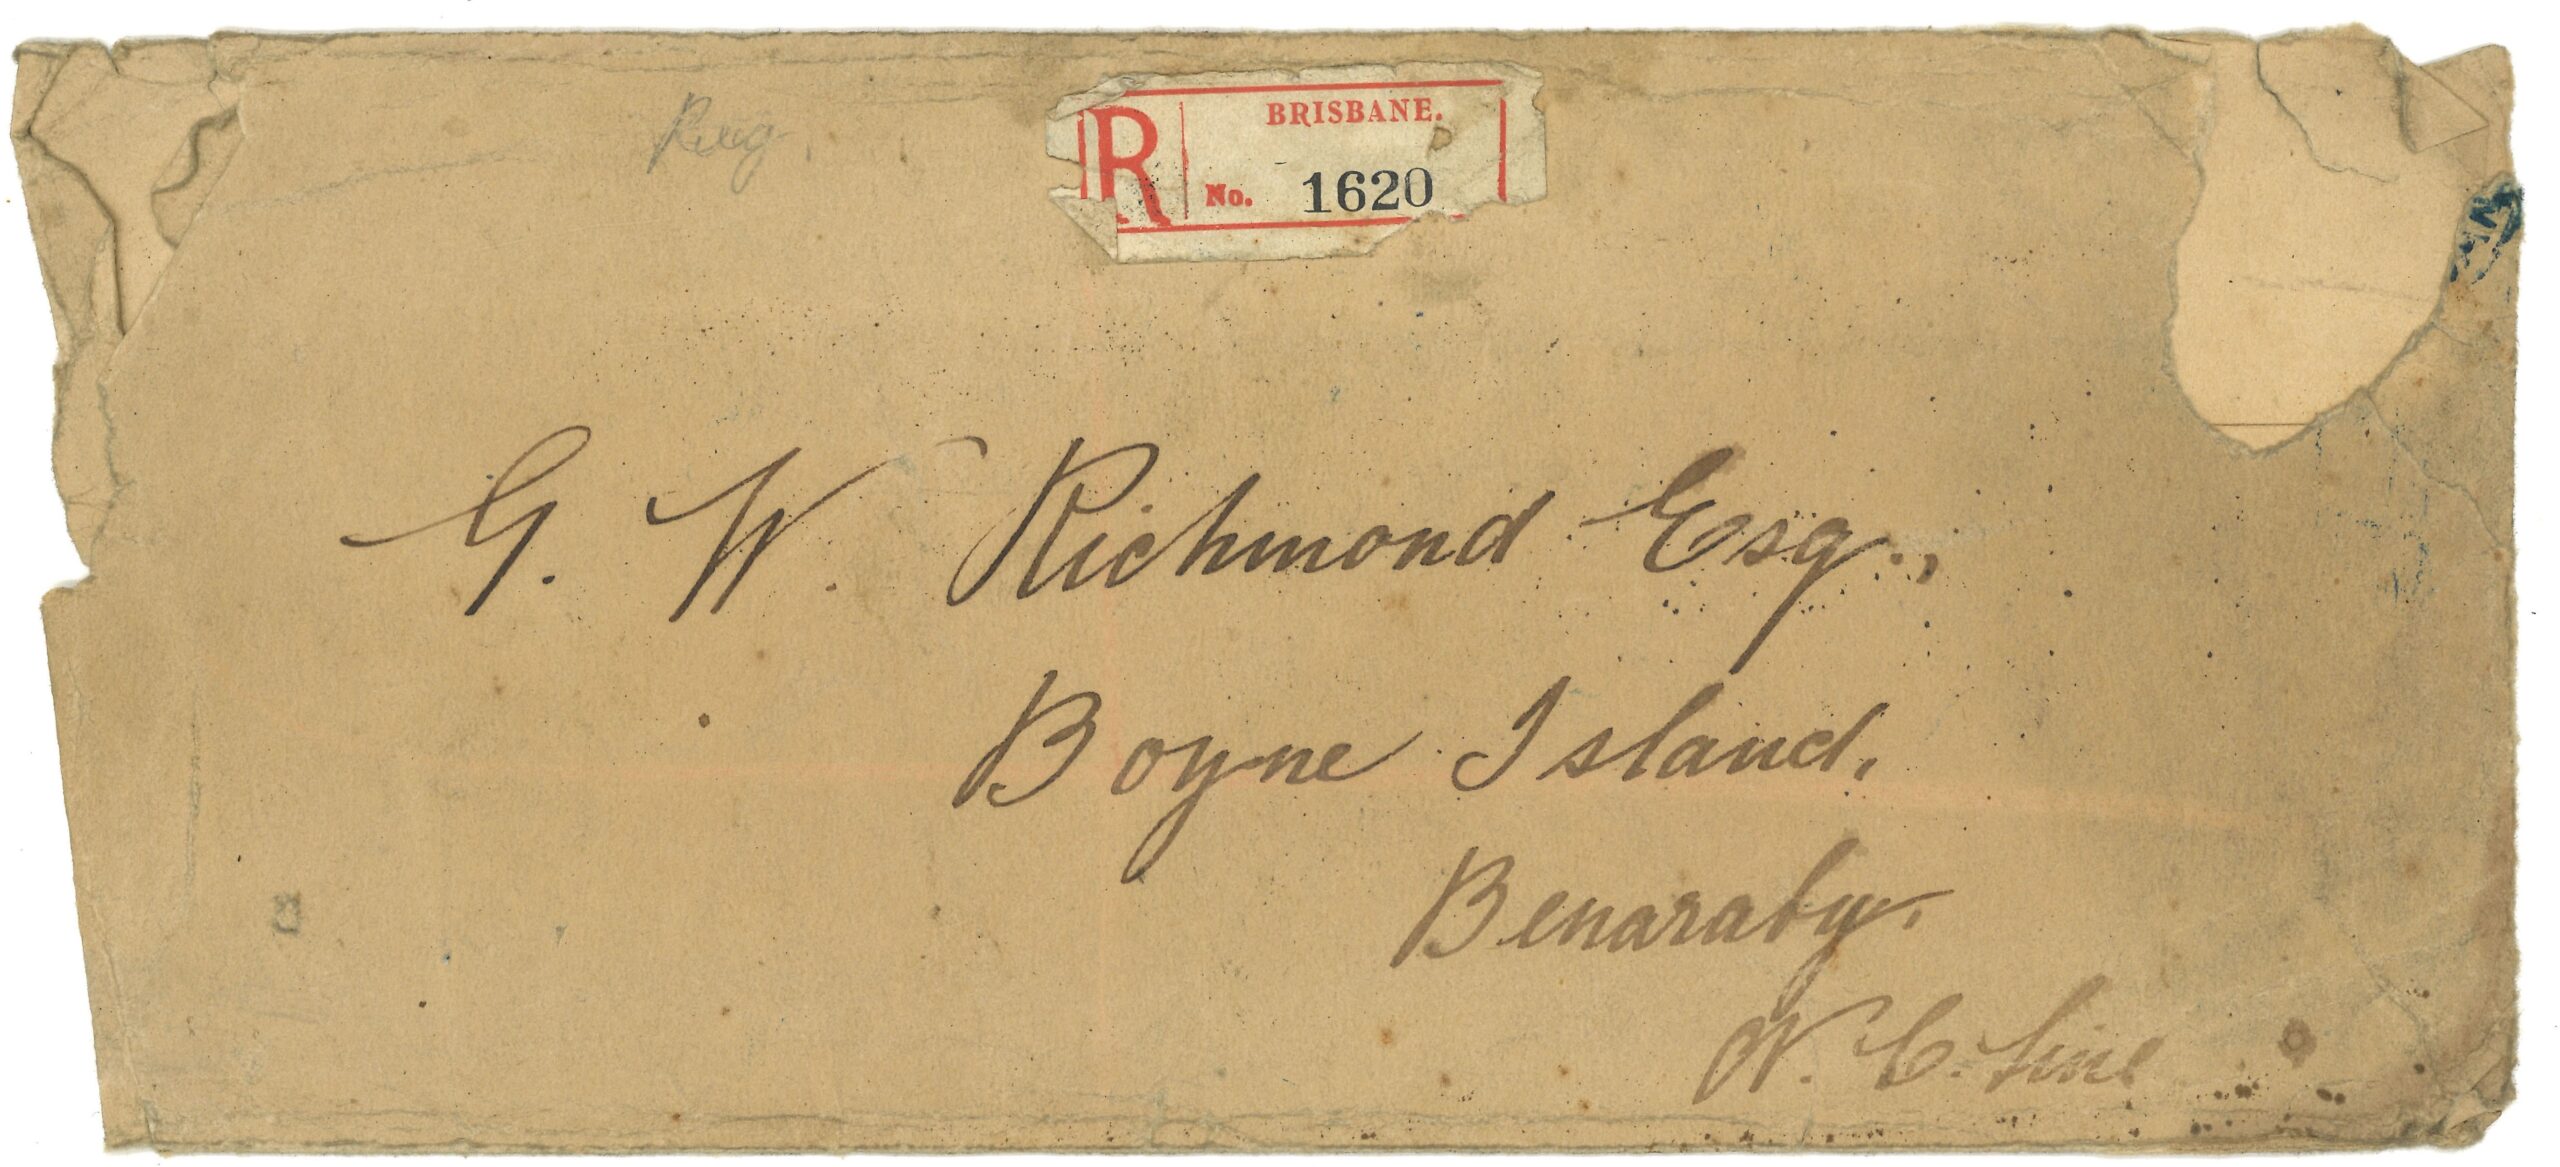 Reg
R BRISBANE.
No. 1620
G. W. Richmond Esq.,
Boyne Island,
Benaraby.
N. C. Line